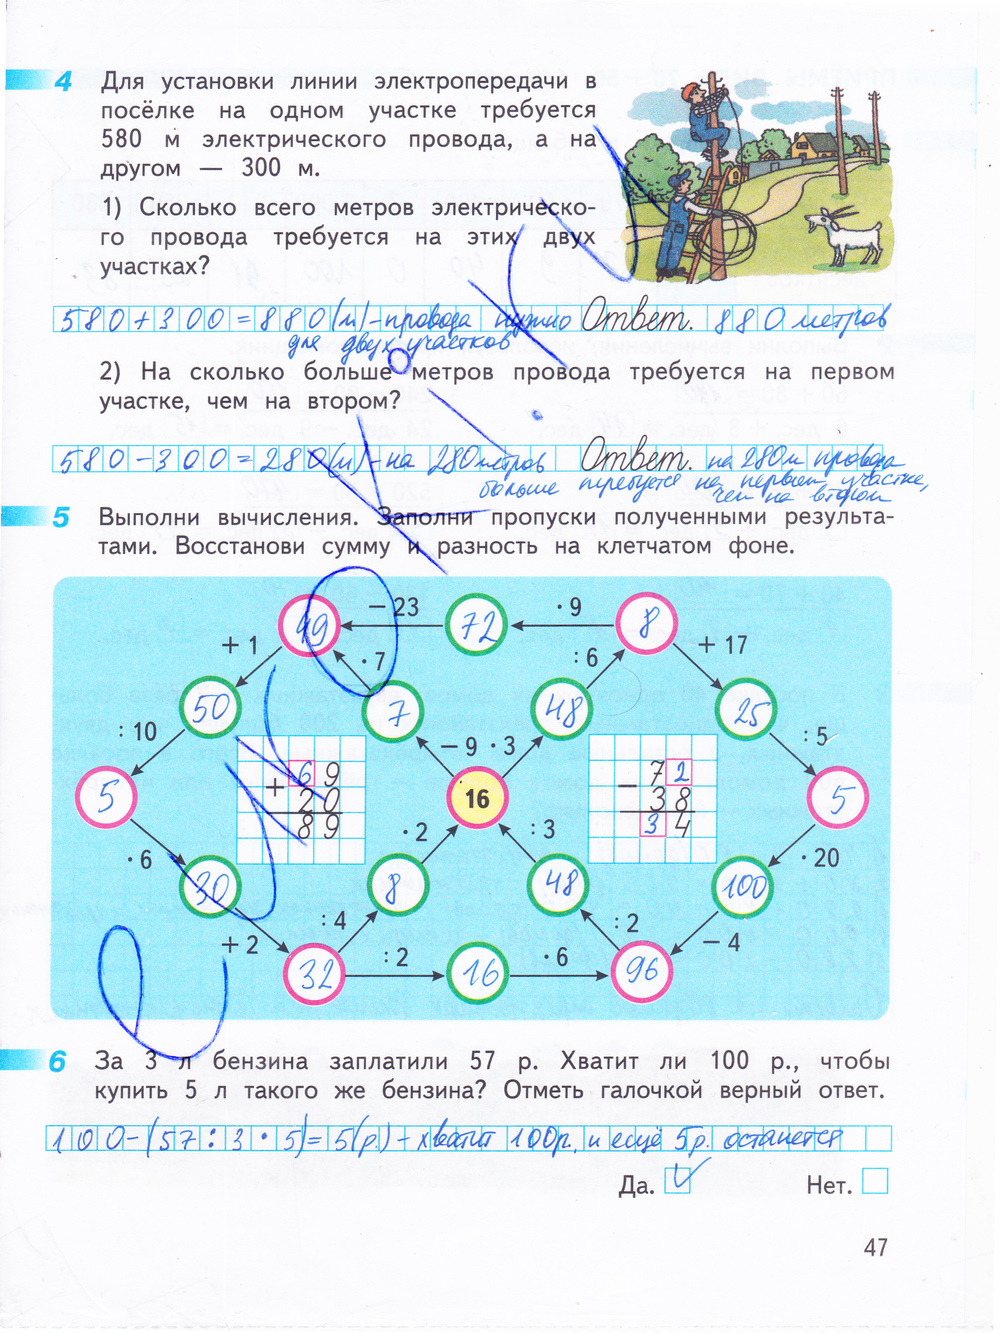 4 Для установки линии электропередачи в
посёлке на одном участке требуется
580 м электрического провода, а на
другом — 300 м.
1) Сколько всего метров электрическо-
го провода требуется на этих двух
участках?
580+300=880(м)-провода нужно Ответ. 880 метров
для двух участков
2) На сколько больше метров провода требуется на первом
участке, чем на втором?
580-300=280(м)-на 280 метров Ответ. на 280м провода
больше требуется на первом участке,
чем на втором
5 Выполни вычисления. Заполни пропуски полученными результа-
тами. Восстанови сумму и разность на клетчатом фоне.
49 − 23 72 · 9 8
+ 1 · 7 : 6 + 17
50 7 48 25
: 10 − 9 · 3 : 5
+ 69 − 72
5 16 5
20 38
89 34
· 6 · 2 : 3 · 20
30 8 48 100
+ 2 : 4 : 2 − 4
32 : 2 16 · 6 96
6 За 3 л бензина заплатили 57 р. Хватит ли 100 р., чтобы
купить 5 л такого же бензина? Отметь галочкой верный ответ.
100-(57:3·5)=5(р.)-хватит 100р. и ещё 5р. останется
Да. Нет.
47